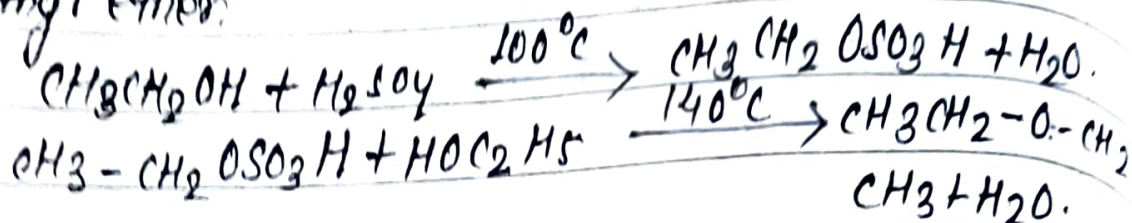 CH3CH2OH + H2SO4 100°C → CH3 CH2 OSO3 H + H2O.
CH3 - CH2 OSO3 H + HOC2 H5 140°C → CH3CH2-O-CH2
CH3 + H2O.